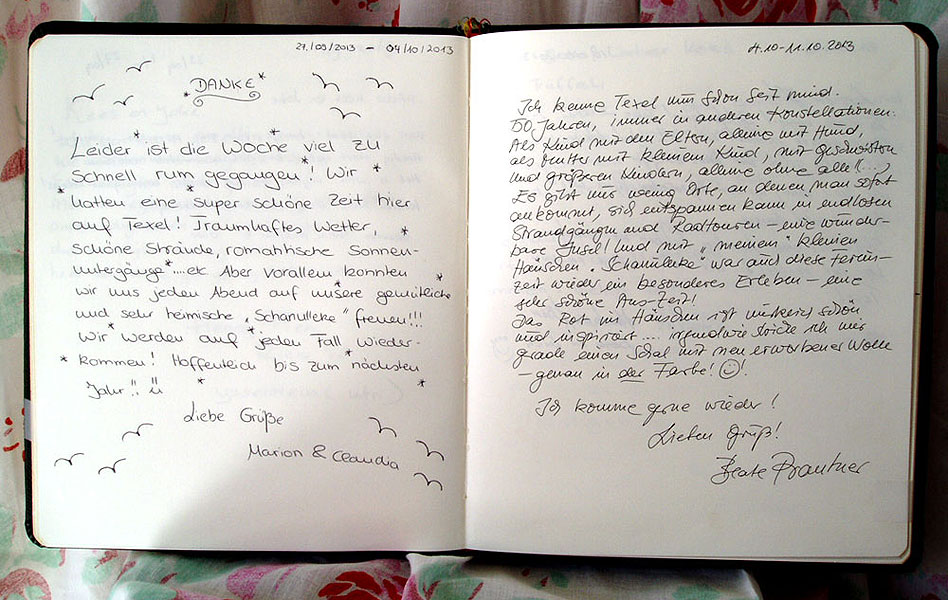 27/09/2013 – 04/10/2013
DANKE
Leider ist die Woche viel zu
schnell rum gegangen! Wir
hatten eine super schöne Zeit hier
auf Texel! Traumhaftes Wetter,
schöne Strände, romantische Sonnen-
untergänge....etc Aber vorallem konnten
wir uns jeden Abend auf unsere gemütliche
und sehr heimische „Schanulleke“ freuen!!!
Wir werden auf jeden Fall wieder-
kommen! Hoffentlich bis zum nächsten
Jahr!!
Liebe Grüße
Marion & Claudia
4.10–11.10.2013
Ich kenne Texel nun schon seit mind.
50 Jahren, immer in anderen Konstellationen.
Als Kind mit den Eltern, alleine mit Hund,
als Mutter mit kleinem Kind, mit Geschwistern
und größeren Kindern, alleine ohne alle (...)
Es gibt nur wenig Orte, an denen man sofort
ankommt, sich entspannen kann in endlosen
Strandgängen und Radtouren – eine wunder-
bare Insel! Und mit „meinem“ kleinen
Häuschen „Schanulleke“ war auch diese Ferien-
zeit wieder ein besonderes Erleben – eine
sehr schöne Aus-Zeit!
Das Rot im Häuschen ist wirklich schön
und inspiriert .... irgendwie stricke ich mir
grade einen Schal mit neu erworbener Wolle
– genau in der Farbe! ☺!
Ich komme gerne wieder!
Lieben Gruß!
Beate Prautner